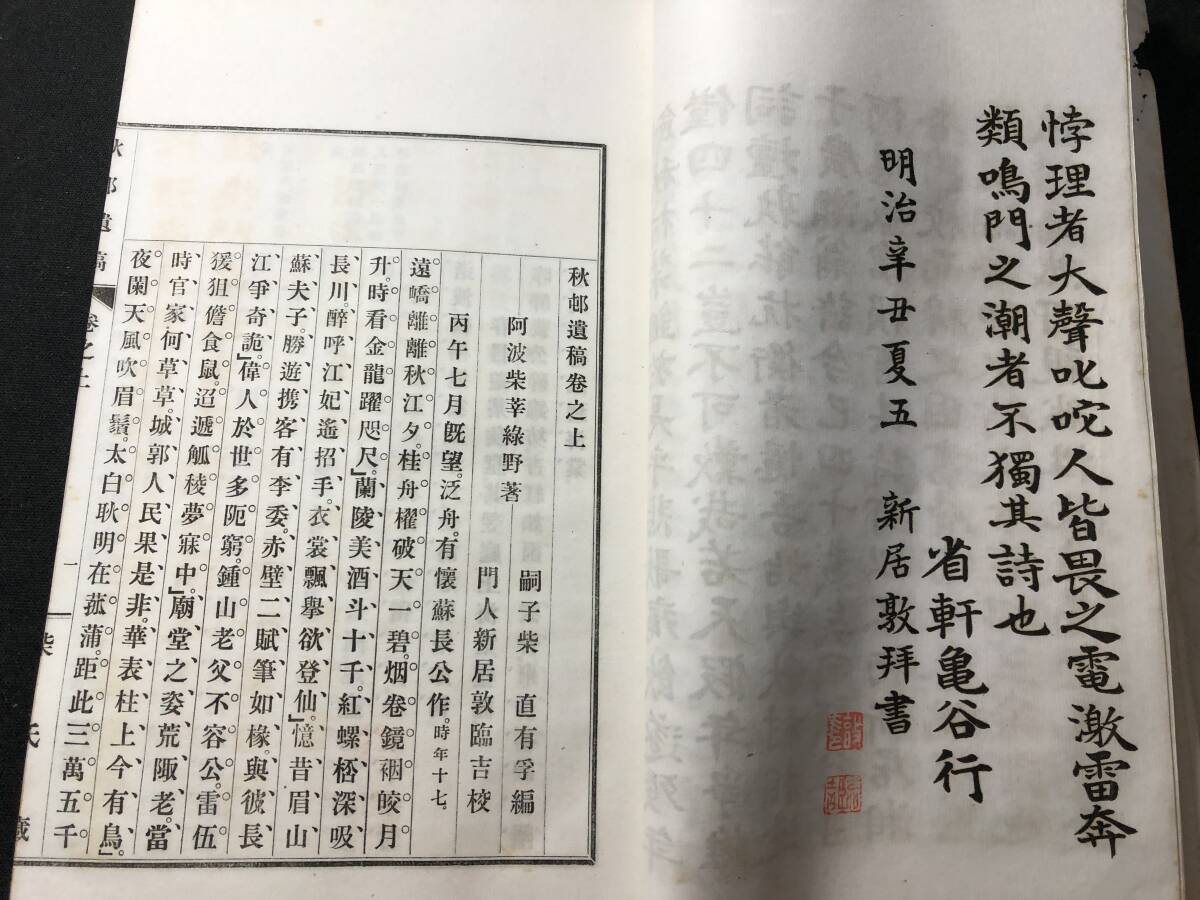 悖理者大聲叱咜人皆畏之電激雷奔
類鳴門之潮者不獨其詩也
省軒亀谷行
明治辛丑夏五　新居敦拜書
秋邨遺稿卷之上
阿波柴莘綠野著　嗣子柴　直有孚編
門人新居敦臨吉校
丙午七月旣望。泛舟。有懷蘇長公作。時年十七。
遠嶠離離秋江夕。桂舟櫂破天一碧。烟卷鏡裀皎月
升。時看金龍躍咫尺。」蘭陵美酒斗十千。紅螺桮深吸
長川。醉呼江妃遙招手。衣裳飄擧欲登仙。」憶昔眉山
蘇夫子。勝遊携客有李委。赤壁二賦筆如椽。與彼長
江爭奇詭。」偉人於世多阨窮。鍾山老父不容公。雷伍
猨狙儋食鼠。迢遞觚稜夢寐中。」廟堂之姿荒陬老。當
時官家何草草。城郭人民果是非。華表柱上今有鳥。」
夜闌天風吹眉鬚。太白耿明在菰蒲。距此三萬五千
秋邨遺稿
卷之上
一
柴氏藏